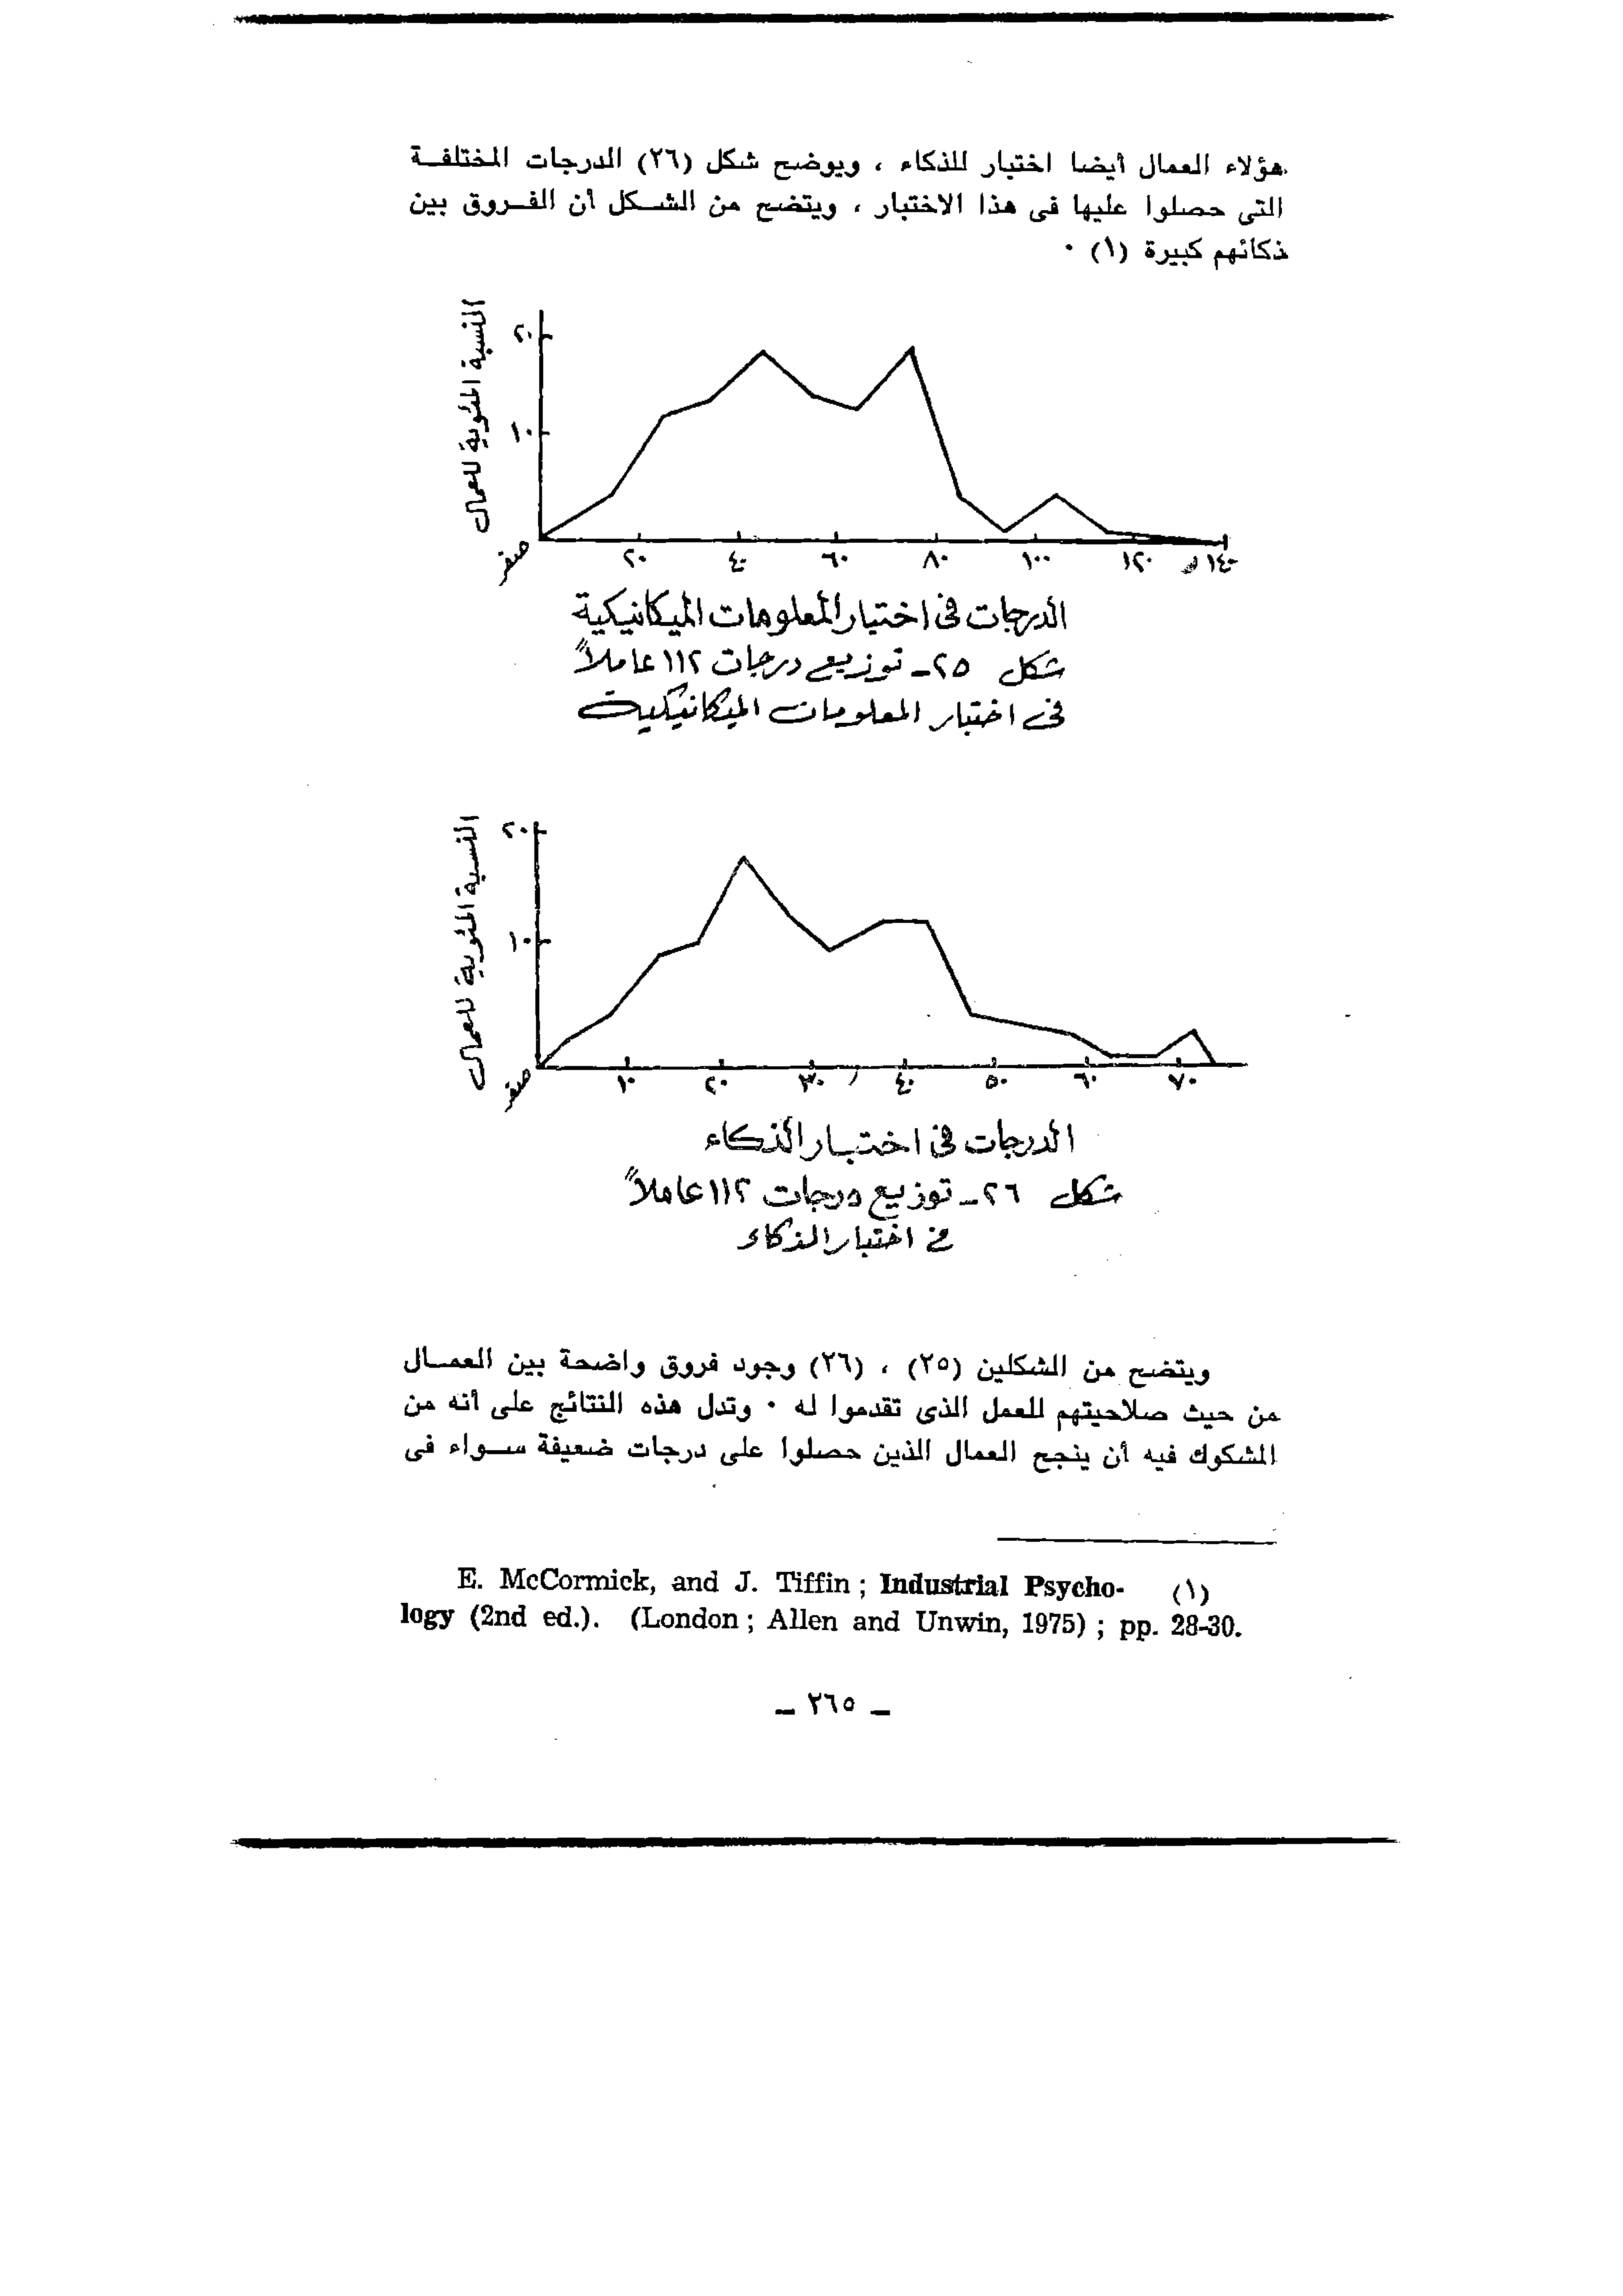 هؤلاء العمال أيضا اختبار للذكاء ، ويوضح شكل (٢٦) الدرجات المختلفة
التى حصلوا عليها فى هذا الاختبار ، ويتضح من الشكل أن الفروق بين
ذكائهم كبيرة (١) ٠
النسبة المئوية للعمال
٢٠
١٠
صفر
٢٠ ٤٠ ٦٠ ٨٠ ١٠٠ ١٢٠ ١٤٠
الدرجات فى اختبار المعلومات الميكانيكية
شكل ٢٥ - توزيع درجات ١١٢ عاملاً
فى اختبار المعلومات الميكانيكية
النسبة المئوية للعمال
٢٠
١٠
صفر
١٠ ٢٠ ٣٠ ٤٠ ٥٠ ٦٠ ٧٠
الدرجات فى اختبار الذكاء
شكل ٢٦ - توزيع درجات ١١٢ عاملاً
فى اختبار الذكاء
ويتضح من الشكلين (٢٥) ، (٢٦) وجود فروق واضحة بين العمال
من حيث صلاحيتهم للعمل الذى تقدموا له ٠ وتدل هذه النتائج على أنه من
المشكوك فيه أن ينجح العمال الذين حصلوا على درجات ضعيفة سواء فى
(١) E. McCormick, and J. Tiffin ; Industrial Psycho-
logy (2nd ed.). (London ; Allen and Unwin, 1975) ; pp. 28-30.
– ٢٦٥ –